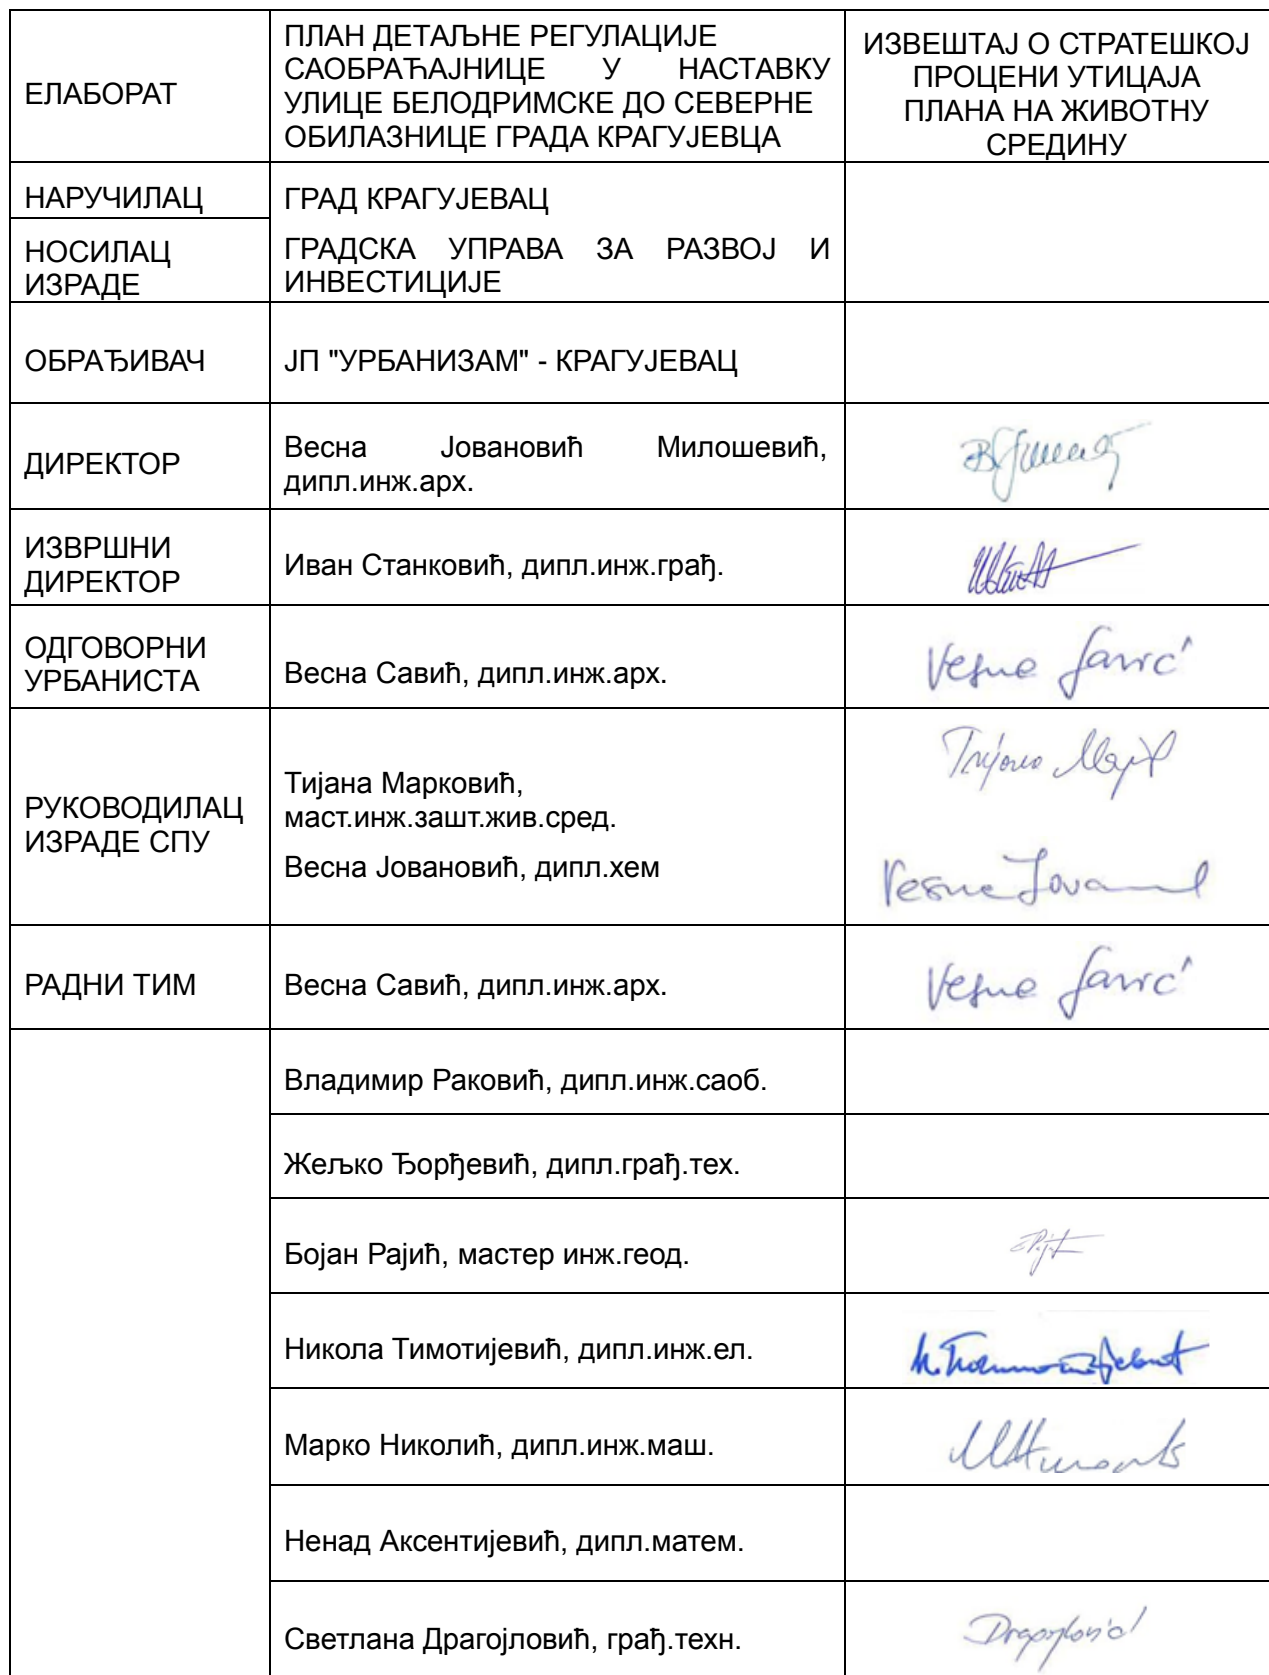 ЕЛАБОРАТ
ПЛАН ДЕТАЉНЕ РЕГУЛАЦИЈЕ
САОБРАЋАЈНИЦЕ У НАСТАВКУ
УЛИЦЕ БЕЛОДРИМСКЕ ДО СЕВЕРНЕ
ОБИЛАЗНИЦЕ ГРАДА КРАГУЈЕВЦА
ИЗВЕШТАЈ О СТРАТЕШКОЈ
ПРОЦЕНИ УТИЦАЈА
ПЛАНА НА ЖИВОТНУ
СРЕДИНУ
НАРУЧИЛАЦ
ГРАД КРАГУЈЕВАЦ
НОСИЛАЦ
ИЗРАДЕ
ГРАДСКА УПРАВА ЗА РАЗВОЈ И
ИНВЕСТИЦИЈЕ
ОБРАЂИВАЧ
ЈП "УРБАНИЗАМ" - КРАГУЈЕВАЦ
ДИРЕКТОР
Весна Јовановић Милошевић,
дипл.инж.арх.
ИЗВРШНИ
ДИРЕКТОР
Иван Станковић, дипл.инж.грађ.
ОДГОВОРНИ
УРБАНИСТА
Весна Савић, дипл.инж.арх.
Vesna Savić
РУКОВОДИЛАЦ
ИЗРАДЕ СПУ
Тијана Марковић,
маст.инж.зашт.жив.сред.
Весна Јовановић, дипл.хем
Vesna
РАДНИ ТИМ
Весна Савић, дипл.инж.арх.
Vesna Savić
Владимир Раковић, дипл.инж.саоб.
Жељко Ђорђевић, дипл.грађ.тех.
Бојан Рајић, мастер инж.геод.
Никола Тимотијевић, дипл.инж.ел.
Марко Николић, дипл.инж.маш.
Ненад Аксентијевић, дипл.матем.
Светлана Драгојловић, грађ.техн.